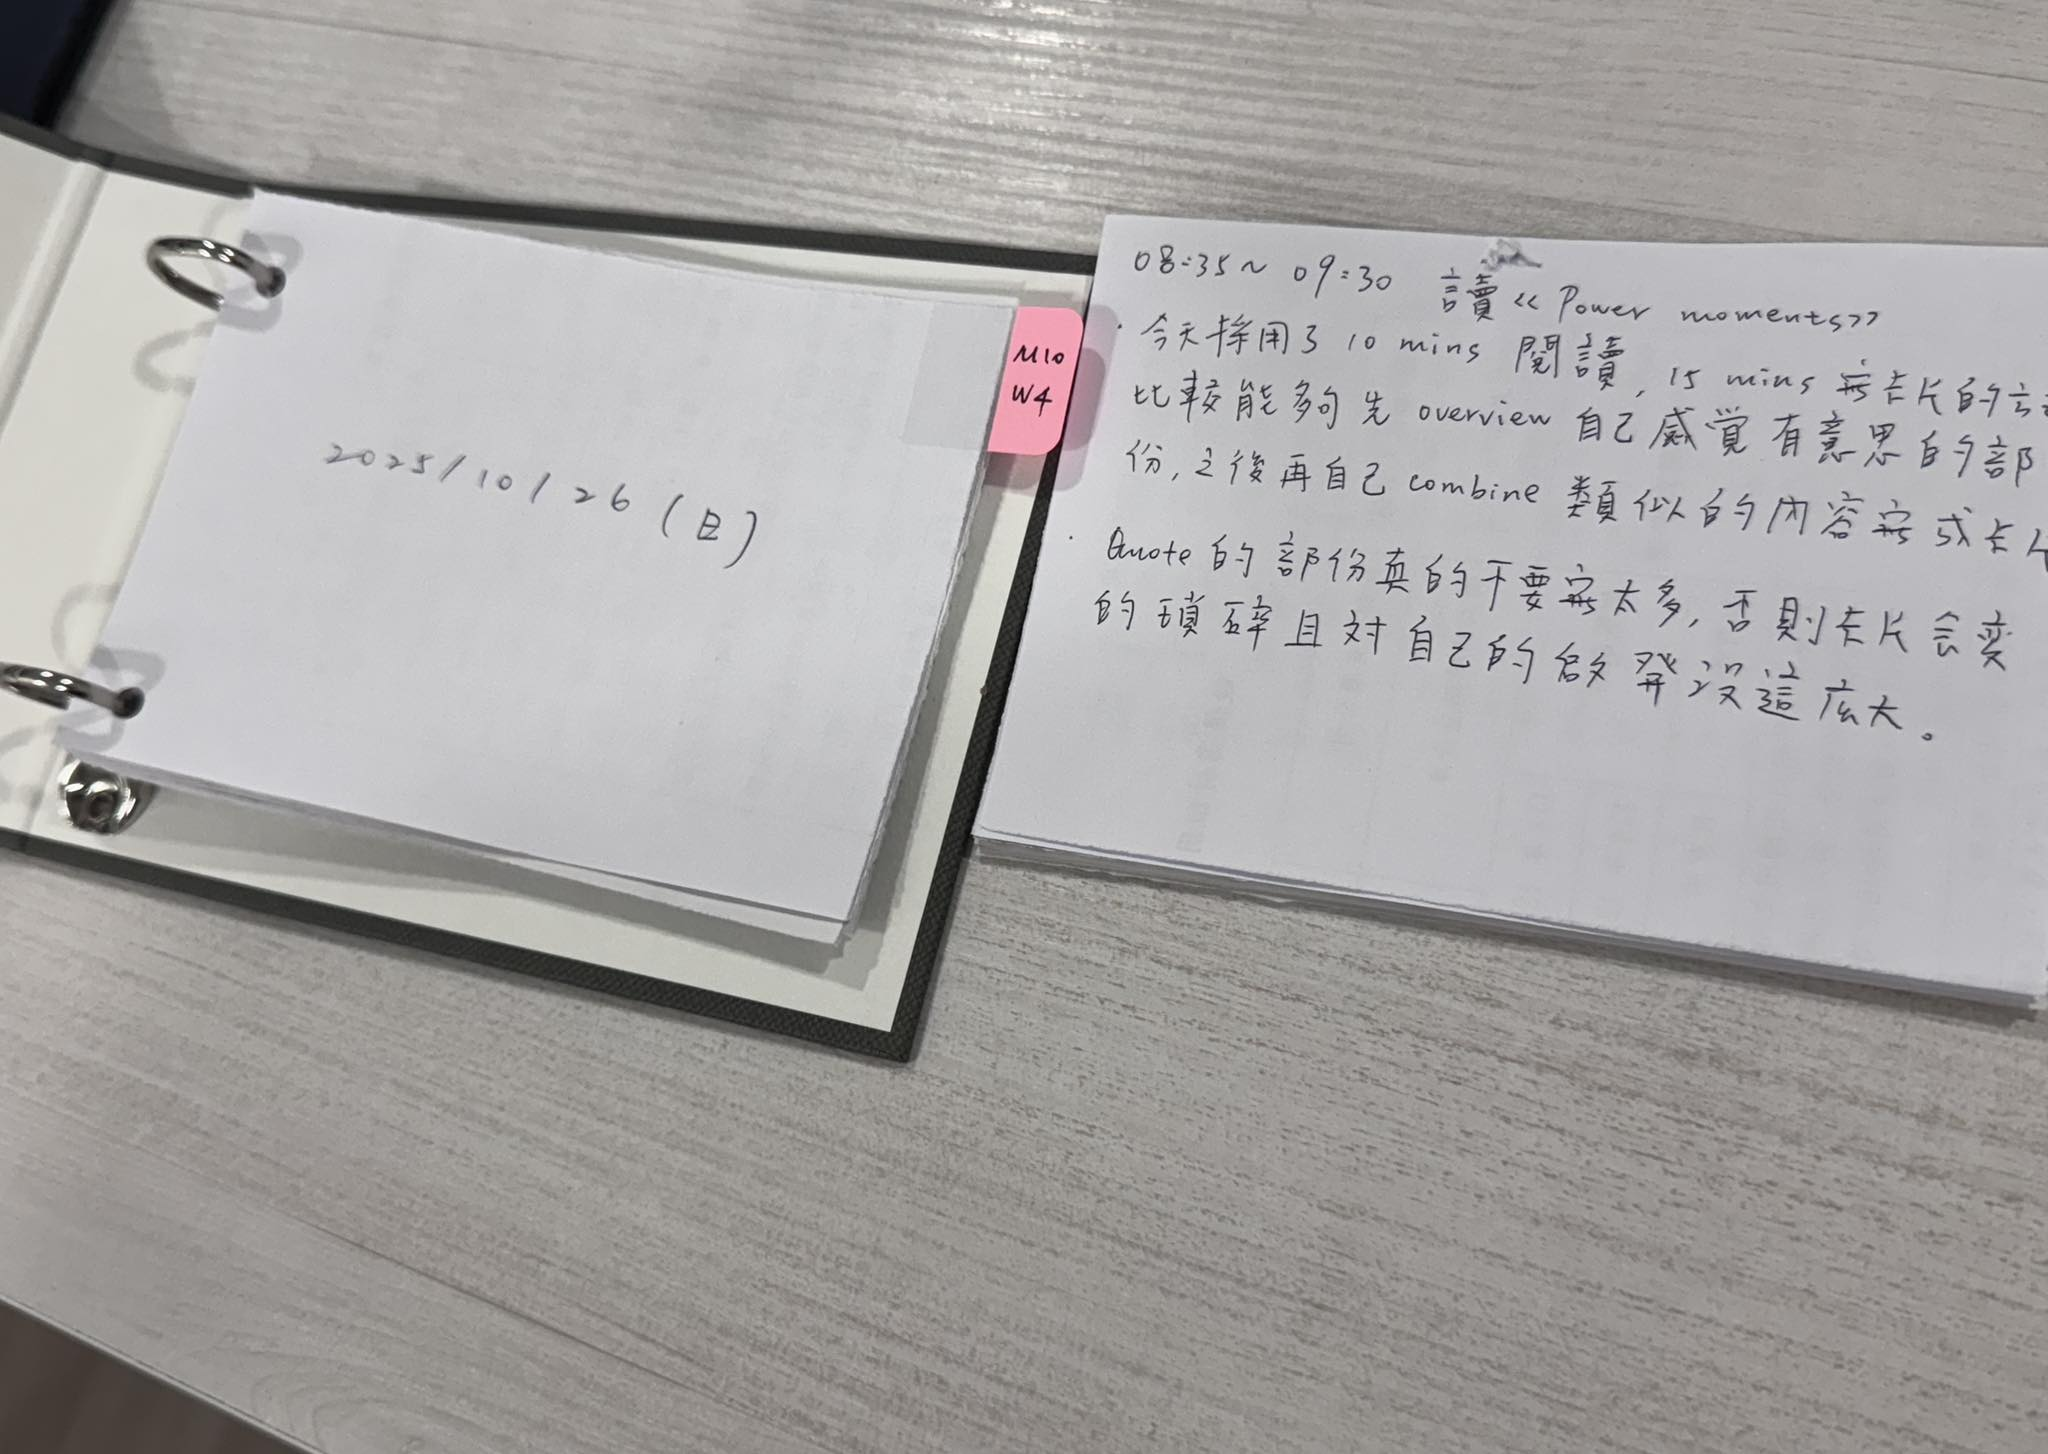 2025/10/26 (日)
M10
W4
08:35~09:30 讀《Power moments》
·今天採用了 10 mins 閱讀, 15 mins 寫卡片的
比較能夠先 overview 自己感覺有意思的部
份, 之後再自己 combine 類似的內容寫成卡片
·Quote 的部份真的不要寫太多, 否則卡片会变
的瑣碎且对自己的啟發沒這広大。